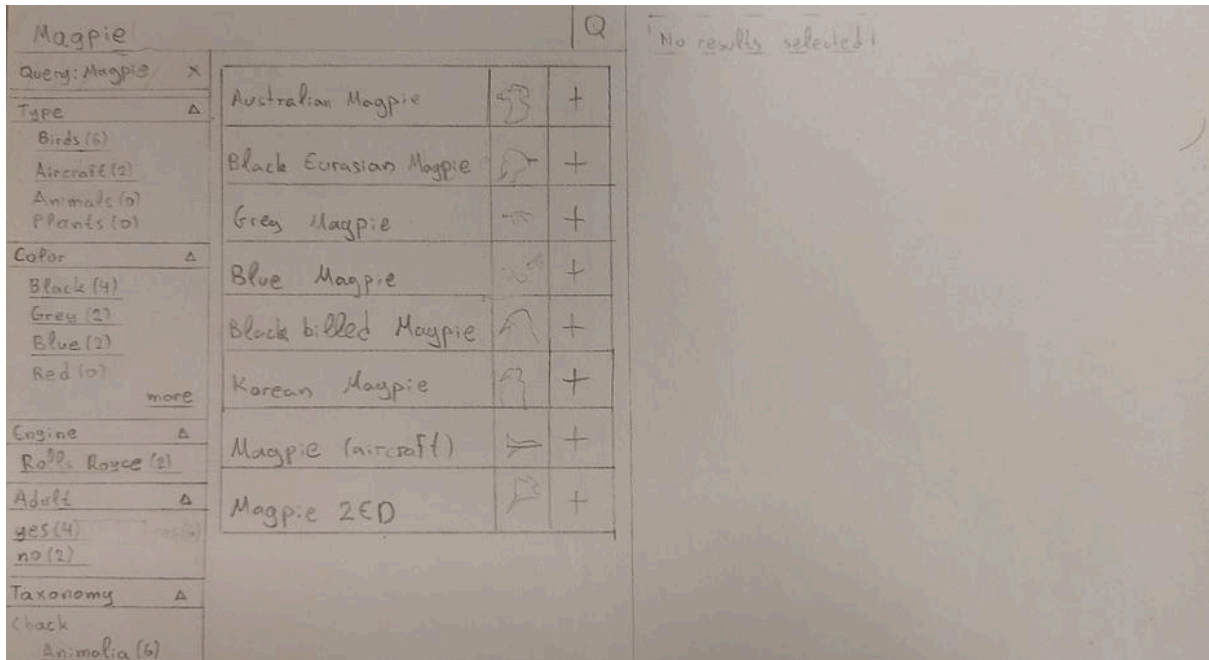 Magpie
Q
No results selected!
Query: Magpie X
Type
Birds (6)
Aircraft (2)
Animals (0)
Plants (0)
Color
Black (4)
Grey (2)
Blue (2)
Red (0)
more
Engine
Rolls Royce (2)
Adult
yes (4)
no (2)
Taxonomy
< back
Animalia (6)
Australian Magpie +
Black Eurasian Magpie +
Grey Magpie +
Blue Magpie +
Black billed Magpie +
Korean Magpie +
Magpie (aircraft) +
Magpie 2ED +